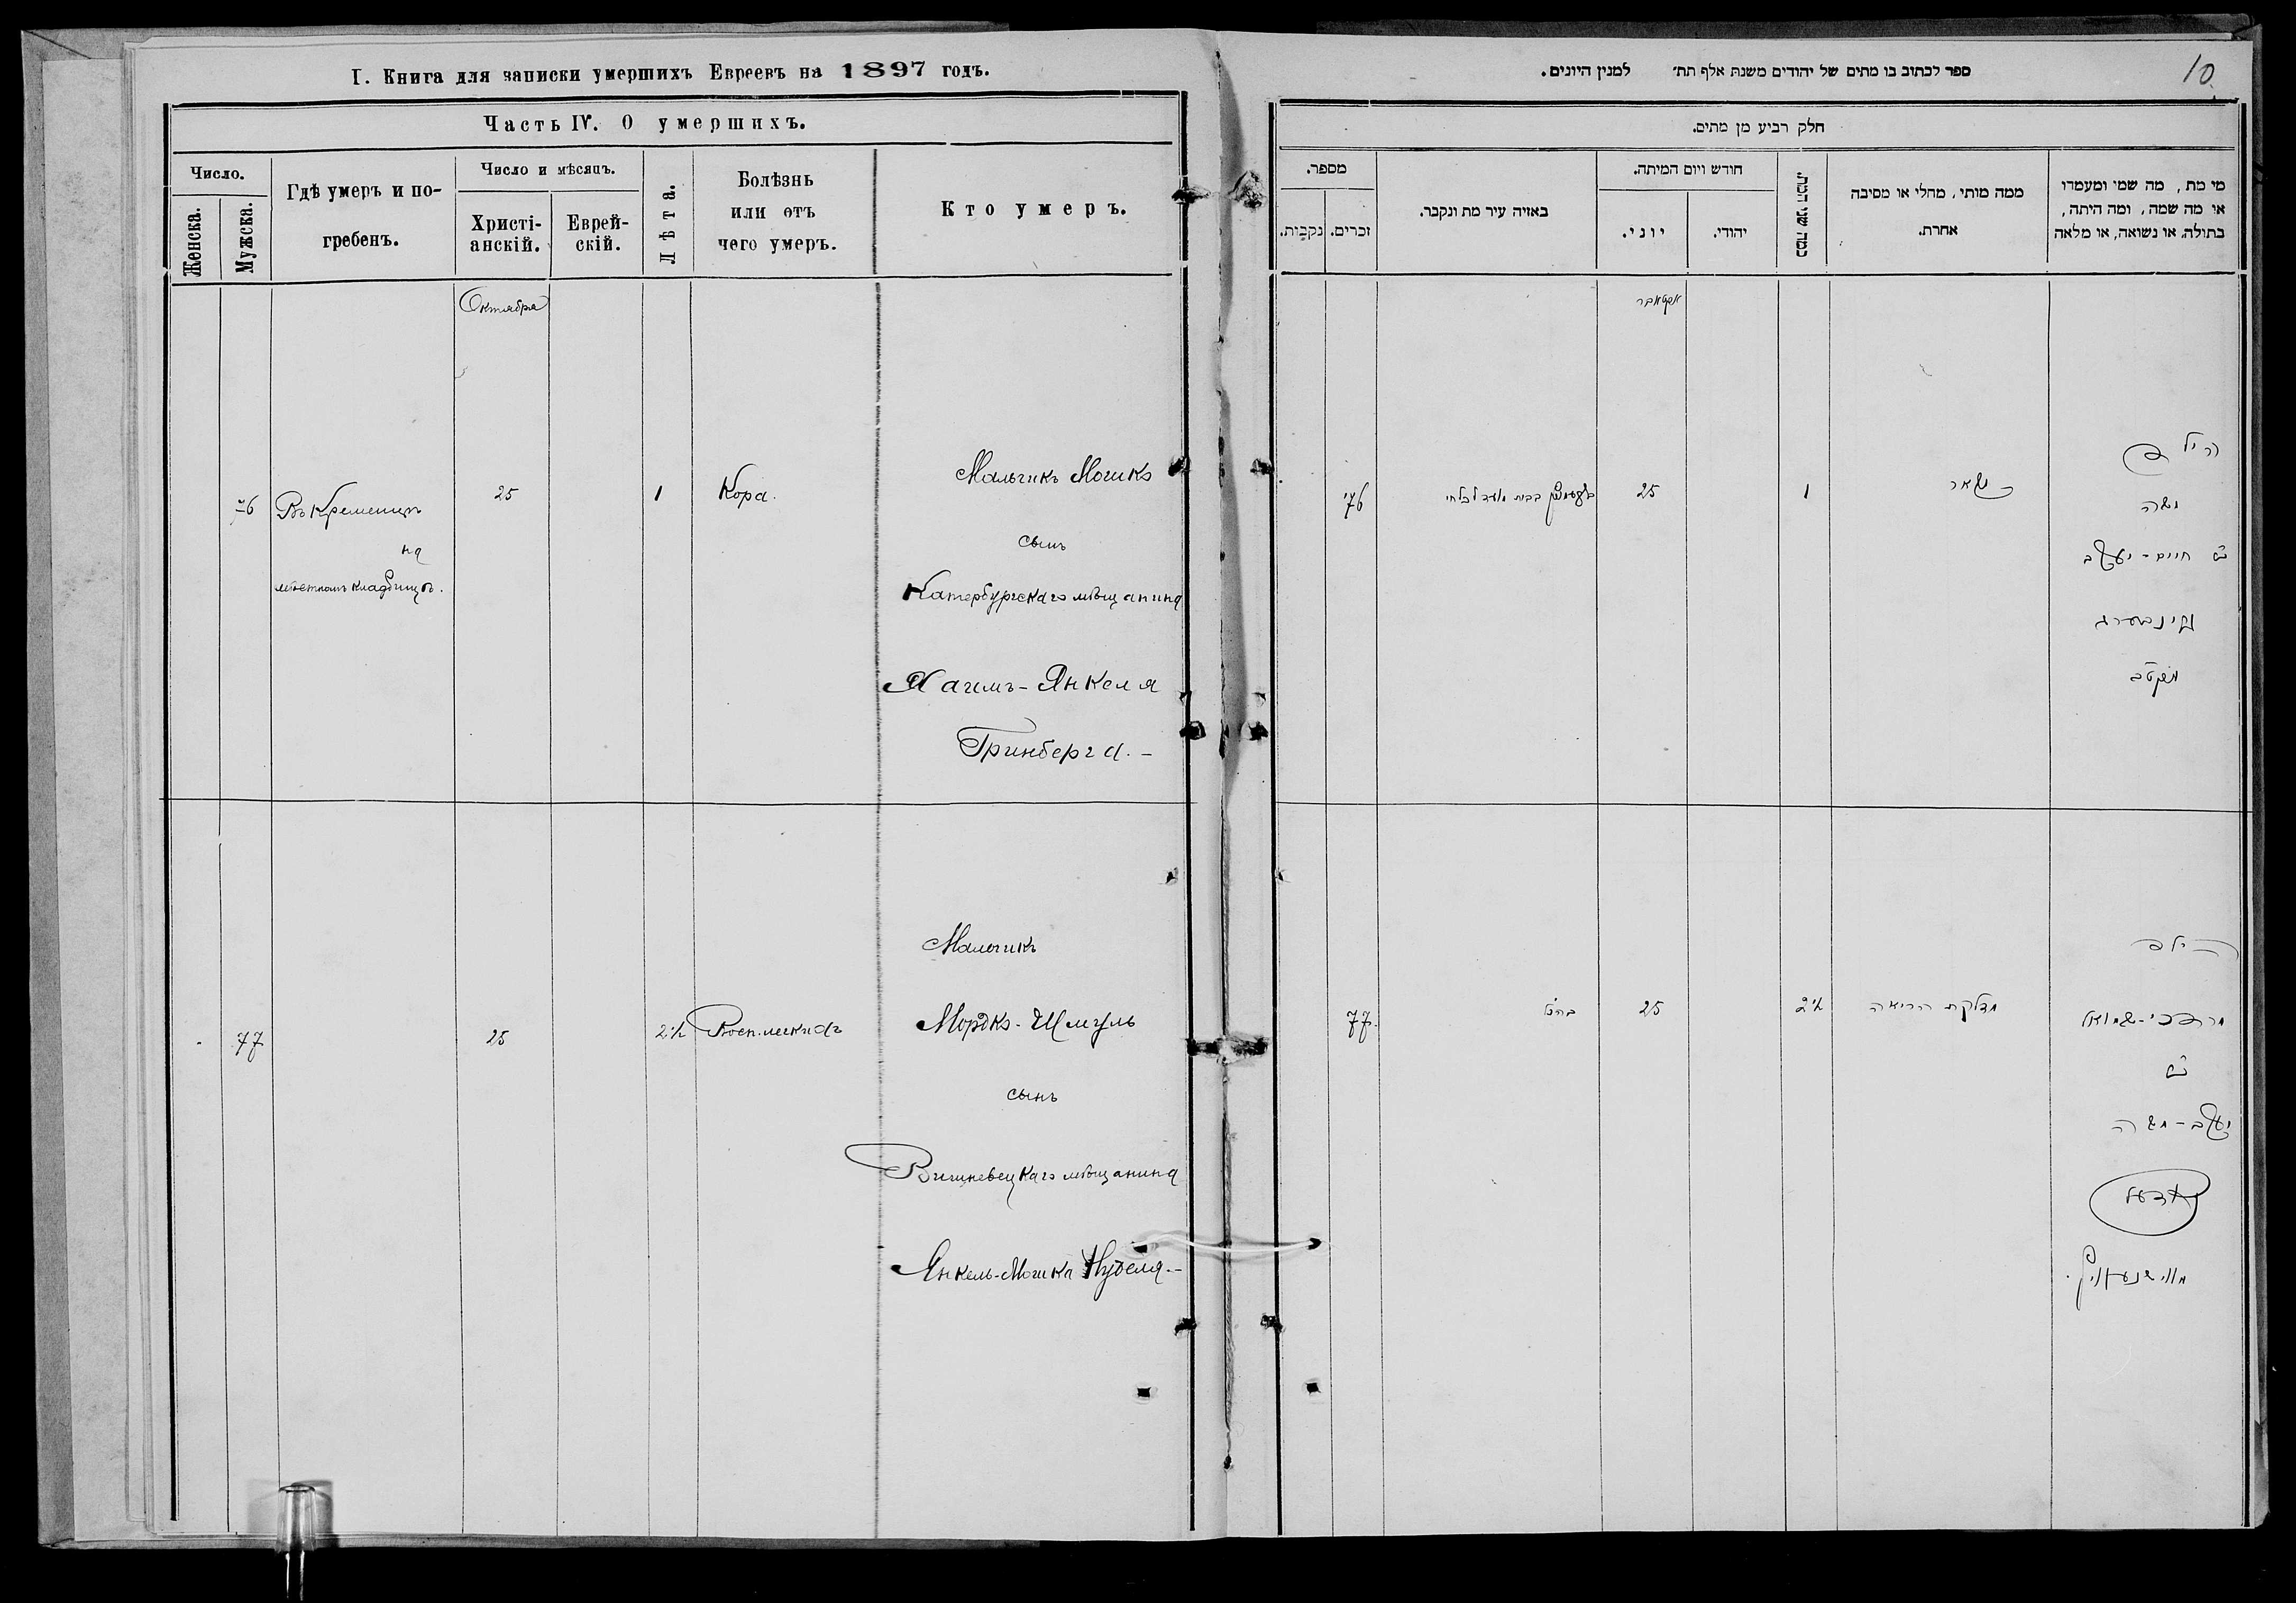 I. Книга для записки умершихъ Евреевъ на 1897 годъ.
Часть IV. О умершихъ.
Число.
Женска.
Мужска.
Гдѣ умеръ и по-
гребенъ.
Число и мѣсяцъ.
Христі-
анскій.
Еврей-
скій.
Лѣта.
Болѣзнь
или отъ
чего умеръ.
Кто умеръ.
Октября
76
Въ Кременцѣ
на
мѣстномъ кладбищѣ.
25
1
Кора.
Мальчикъ Мошко
сынъ
Катербургскаго мѣщанина
Хаимъ-Янкеля
Гринберга.-
77
25
2½
Восп. легкихъ
Мальчикъ
Мордко-Шмуль
сынъ
Вишневецкаго мѣщанина
Янкель-Мошка Нуделя.-
ספר לכתוב בו מתים של יהודים משנת אלף תת׳ למנין היונים.
10
חלק רביע מן מתים.
מי מת, מה שמו ומעמדו
או מה שמה, ומה היתה,
בתולה, או נשואה, או מלאה
ממה מותו, מחלי או מסיבה
אחרת.
כמה שני המת.
חודש ויום המיתה.
יהודי.
יוני.
באיזה עיר מת ונקבר.
מספר.
זכרים.
נקבות.
אקטאבר
הילד
משה
חיים-יעקב
1
25
76
הילד
מרדכי-שמואל
יעקב-משה
נאדעל
מווישנעוויץ.
דלקת הריאה
2½
25
כנ״ל
77.